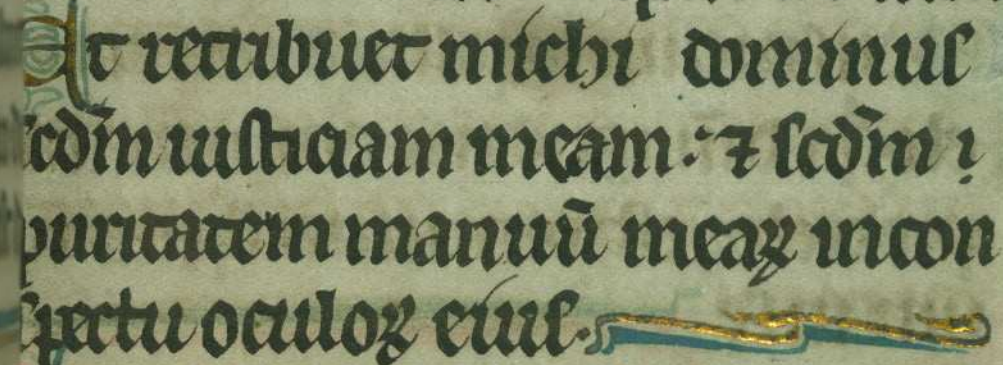 Et retribuet michi dominus
scd̄m iusticiam meam : ⁊ scd̄m
puritatem manuū meaꝝ in con
spectu oculoꝝ eius.